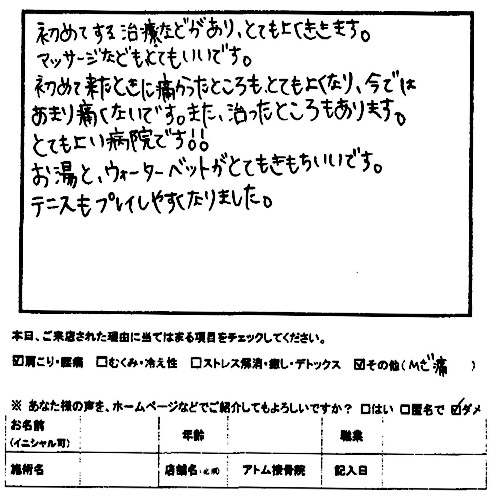 初めてする治療などがあり、とてもよくききます。
マッサージなどもとてもいいです。
初めて来たときに痛かったところも、とてもよくなり、今では
あまり痛くないです。また、治ったところもあります。
とてもよい病院です!!
お湯と、ウォーターベットがとてもきもちいいです。
テニスもプレイしやすくなりました。
本日、ご来店された理由に当てはまる項目をチェックしてください。
☑肩こり・腰痛 □むくみ・冷え性 □ストレス解消・癒し・デトックス ☑その他( 痛 )
※ あなた様の声を、ホームページなどでご紹介してもよろしいですか? □はい □匿名で ☑ダメ
お名前 (イニシャル可) 年齢 職業
施術名 店舗名 アトム接骨院 記入日